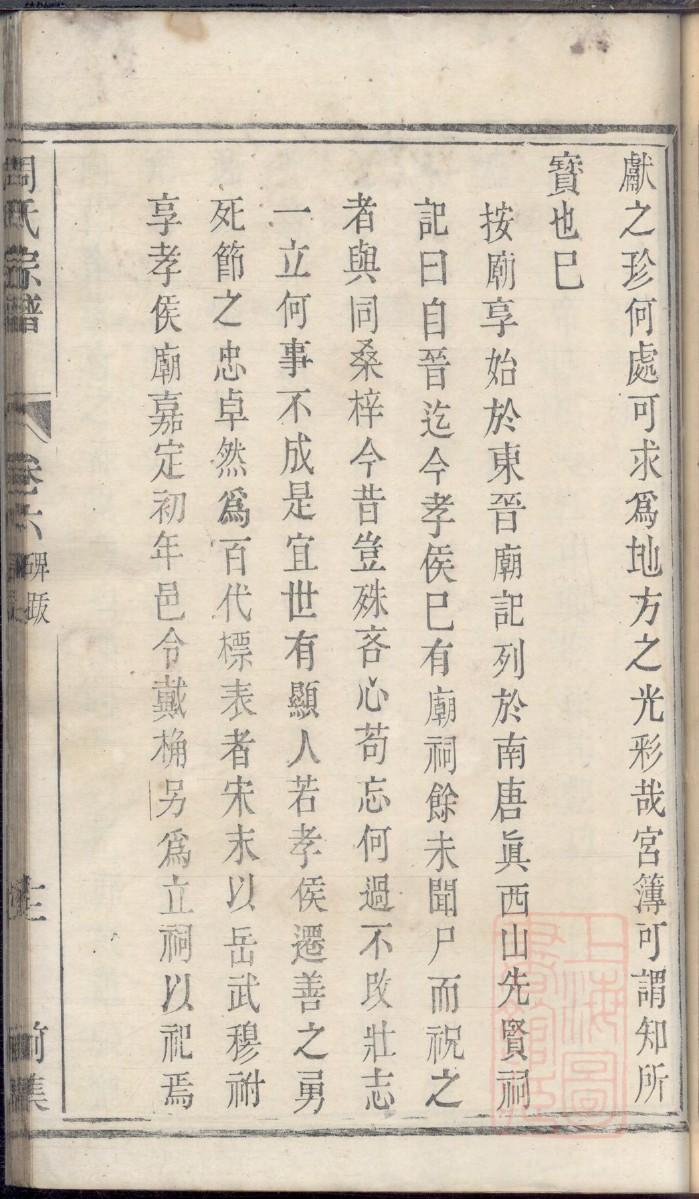 獻之珍何處可求爲地方之光彩哉宮簿可謂知所
寶也已
按廟享始於東晉廟記列於南唐眞西山先賢祠
記曰自晉迄今孝侯已有廟祠餘未聞尸而祝之
者與同桑梓今昔豈殊吝心苟忘何過不改壯志
一立何事不成是宜世有顯人若孝侯遷善之勇
死節之忠卓然爲百代標表者宋末以岳武穆祔
享孝侯廟嘉定初年邑令戴桷另爲立祠以祀焉
周氏宗譜
卷六
碑跋
上海圖書館藏